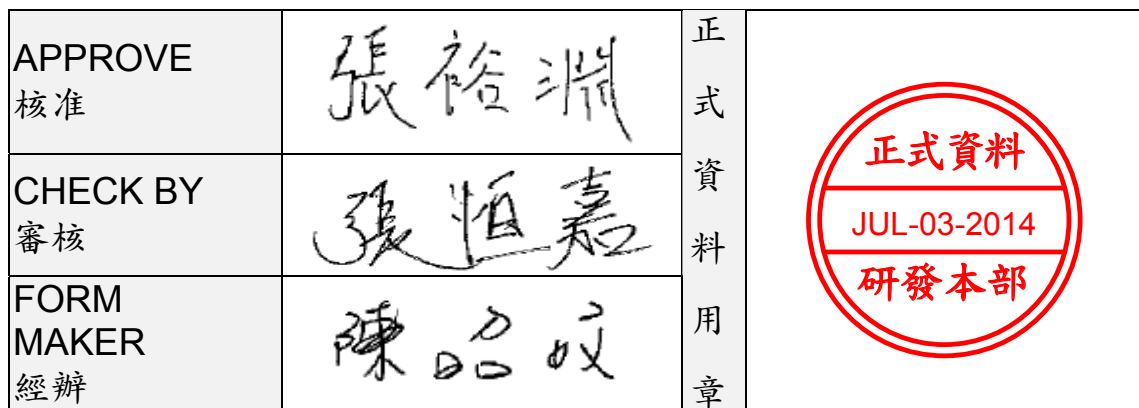 APPROVE
核准
張裕淵
CHECK BY
審核
張恒嘉
FORM
MAKER
經辦
陳招妏
正式資料用章
正式資料
JUL-03-2014
研發本部